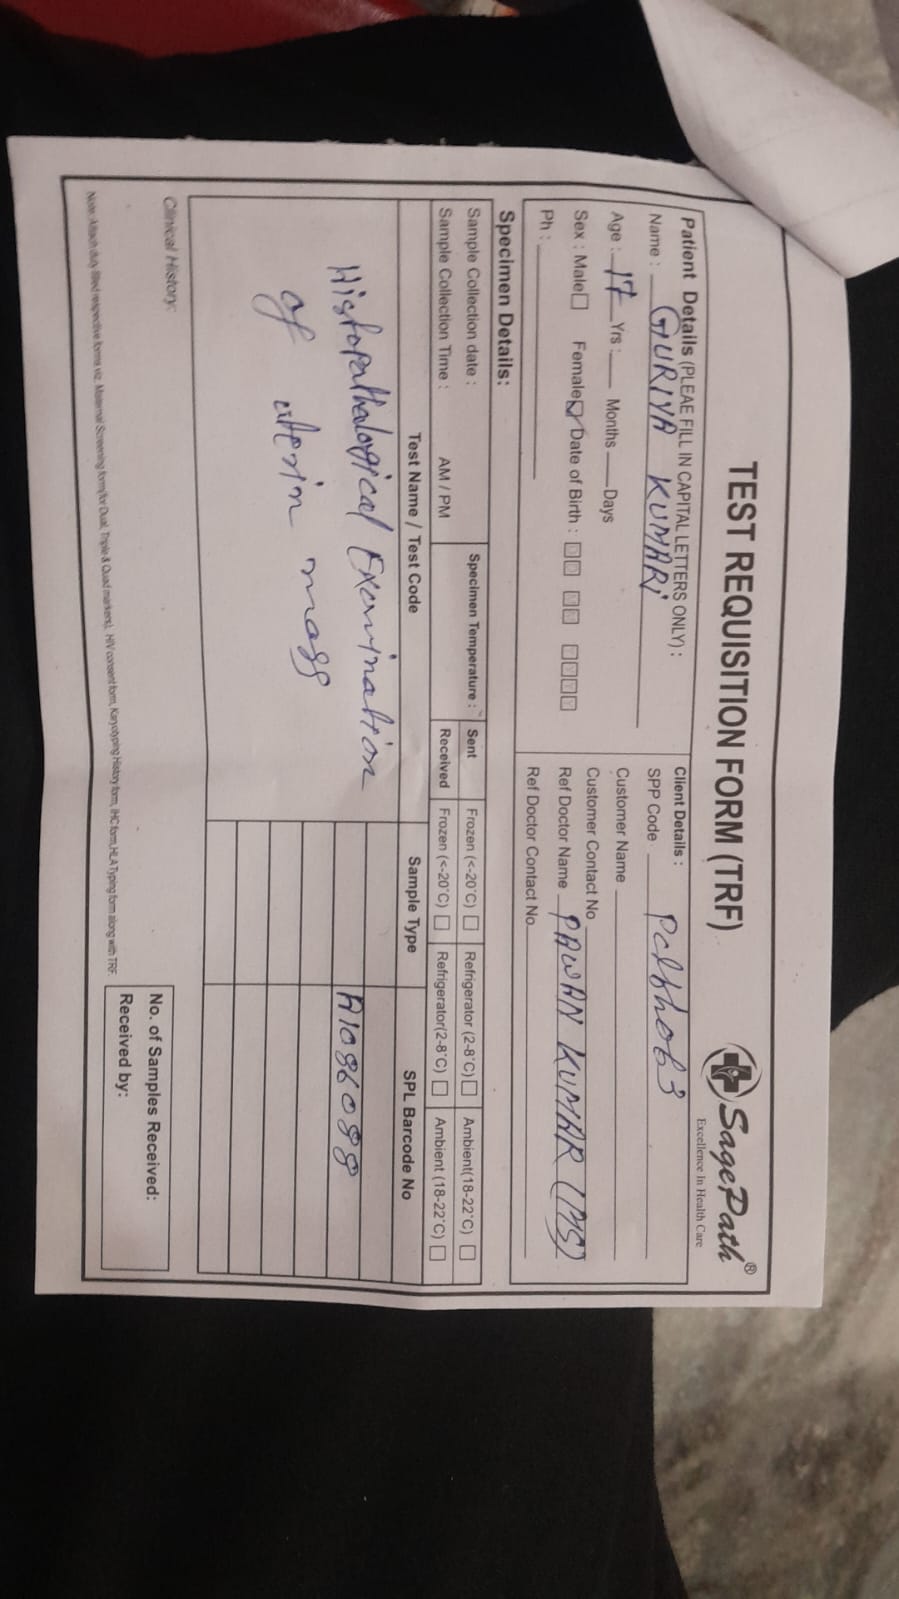 TEST REQUISITION FORM (TRF)
SagePath®
Excellence In Health Care
Patient Details (PLEAE FILL IN CAPITAL LETTERS ONLY) :
Name : GURIYA KUMARI
Age : 17 Yrs : Months Days
Sex : Male Female Date of Birth :
Ph :
Client Details :
SPP Code
Customer Name
Customer Contact No
Ref Doctor Name PAWAN KUMAR (MS)
Ref Doctor Contact No
Specimen Details:
Sample Collection date :
Sample Collection Time : AM / PM
Specimen Temperature :
Sent Frozen (<-20°C) Refrigerator (2-8°C) Ambient(18-22°C)
Received Frozen (<-20°C) Refrigerator(2-8°C) Ambient (18-22°C)
Test Name / Test Code Sample Type SPL Barcode No
Histopathological Examination
of uterin mass
A1086088
Clinical History:
No. of Samples Received:
Received by:
Note: Attach duly filled respective forms viz. Maternal Screening form(for Dual, Triple & Quad markers), HIV consent form, Karyotyping History form, IHC form,HLA Typing form along with TRF.